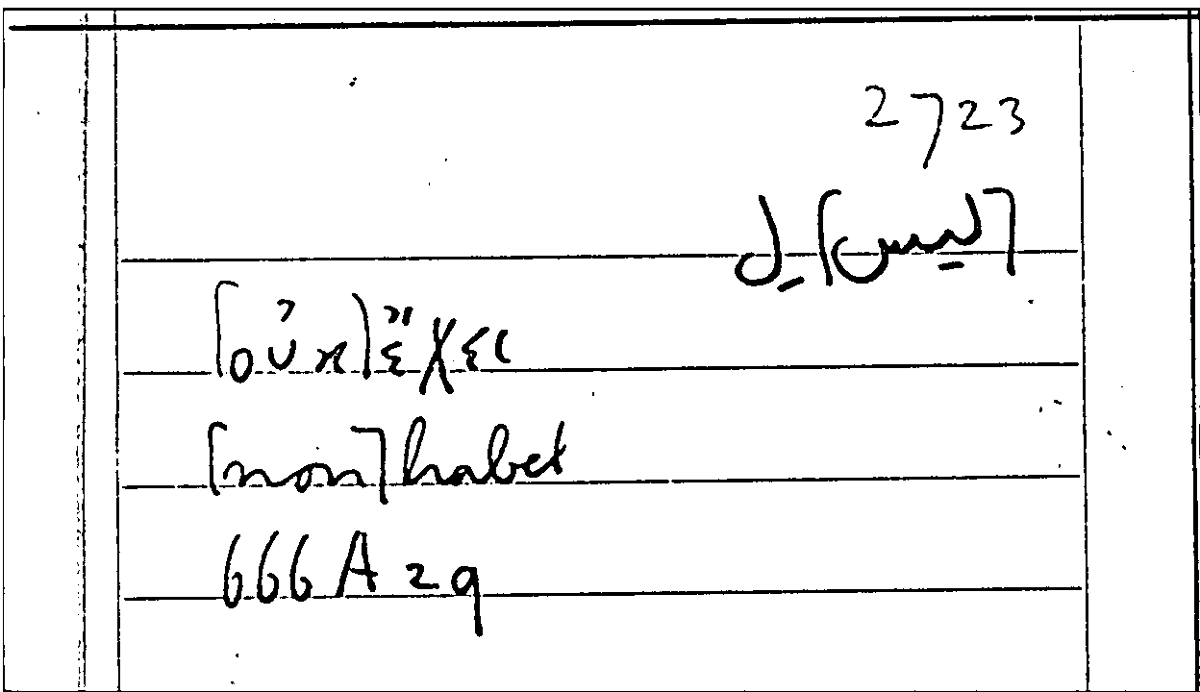 2723
[ليس] له
[οὐκ] ἔχει
[non] habet
666 A 29